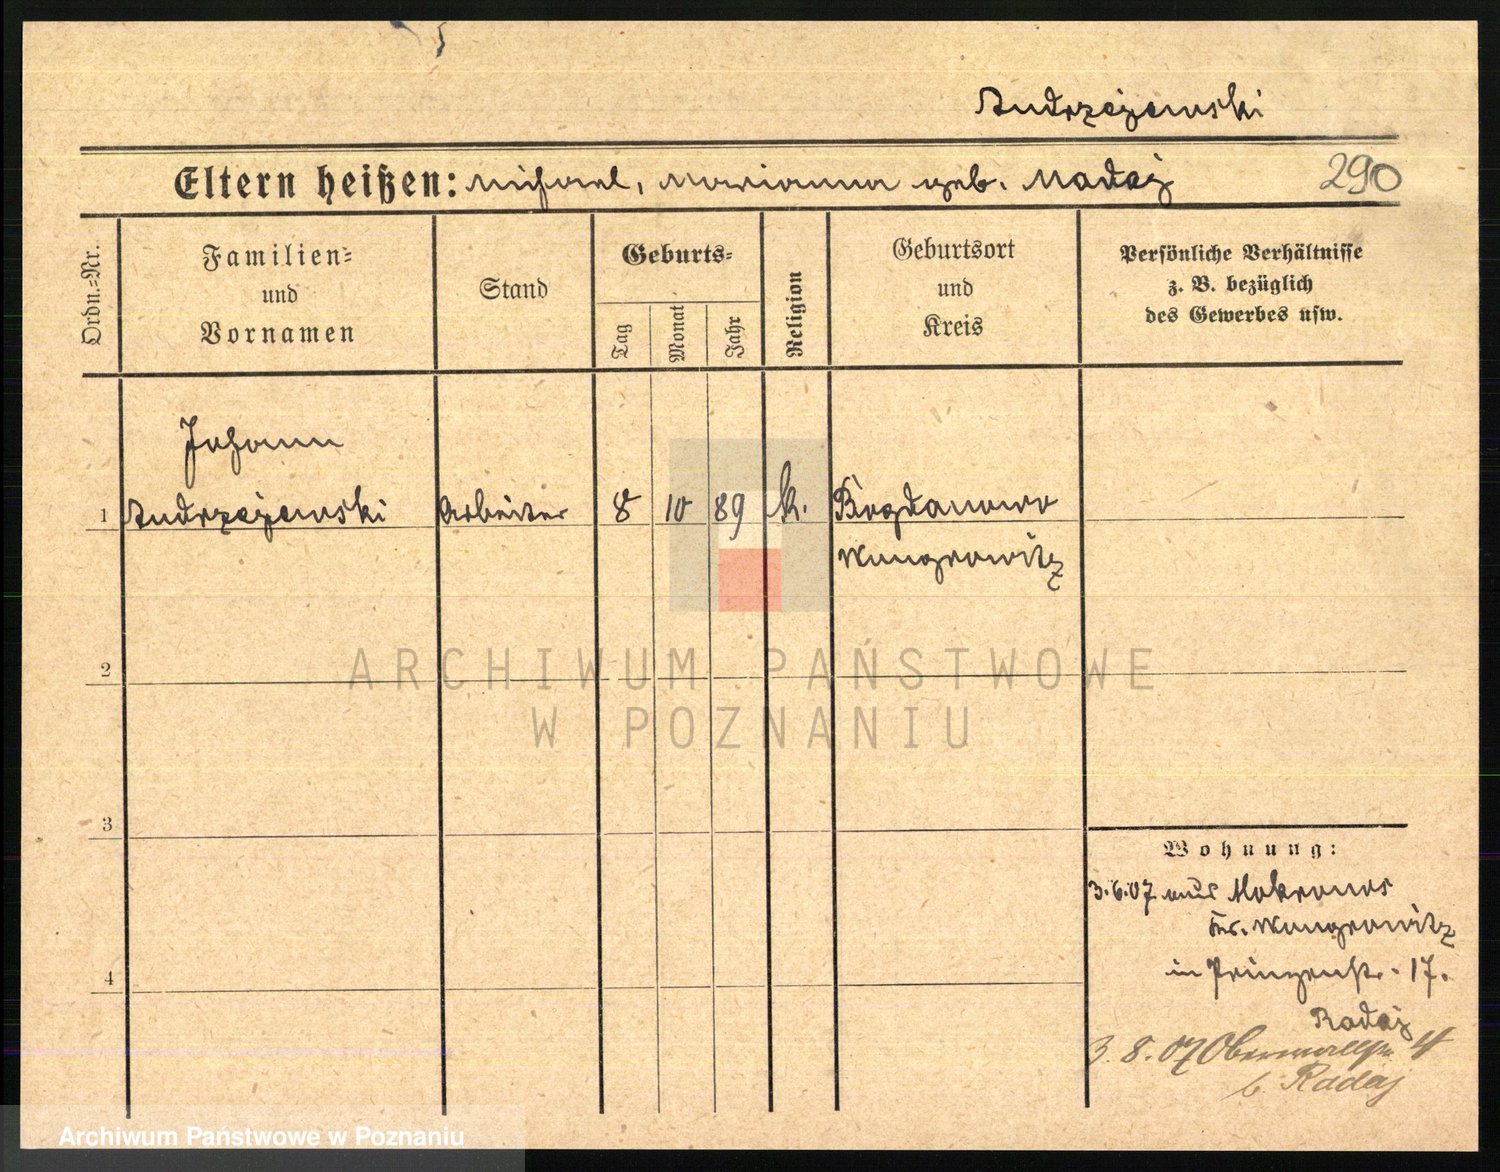 Andrzejewski
Eltern heißen: Michael, Marianna geb. Madaj 290
Ordn.-Nr.
Familien-
und
Vornamen
Stand
Geburts-
Tag
Monat
Jahr
Religion
Geburtsort
und
Kreis
Persönliche Verhältnisse
z. B. bezüglich
des Gewerbes usw.
Johann
1 Andrzejewski Arbeiter 8 10 89 k. Bogdanowo
Wongrowitz
2
ARCHIWUM PAŃSTWOWE
W POZNANIU
3
Wohnung:
3.6.07 aus Mokronos
Kr. Wongrowitz
4
in Prinzenstr. 17.
Radaj
3.8.07 Oberwallstr 4
b. Radaj
Archiwum Państwowe w Poznaniu